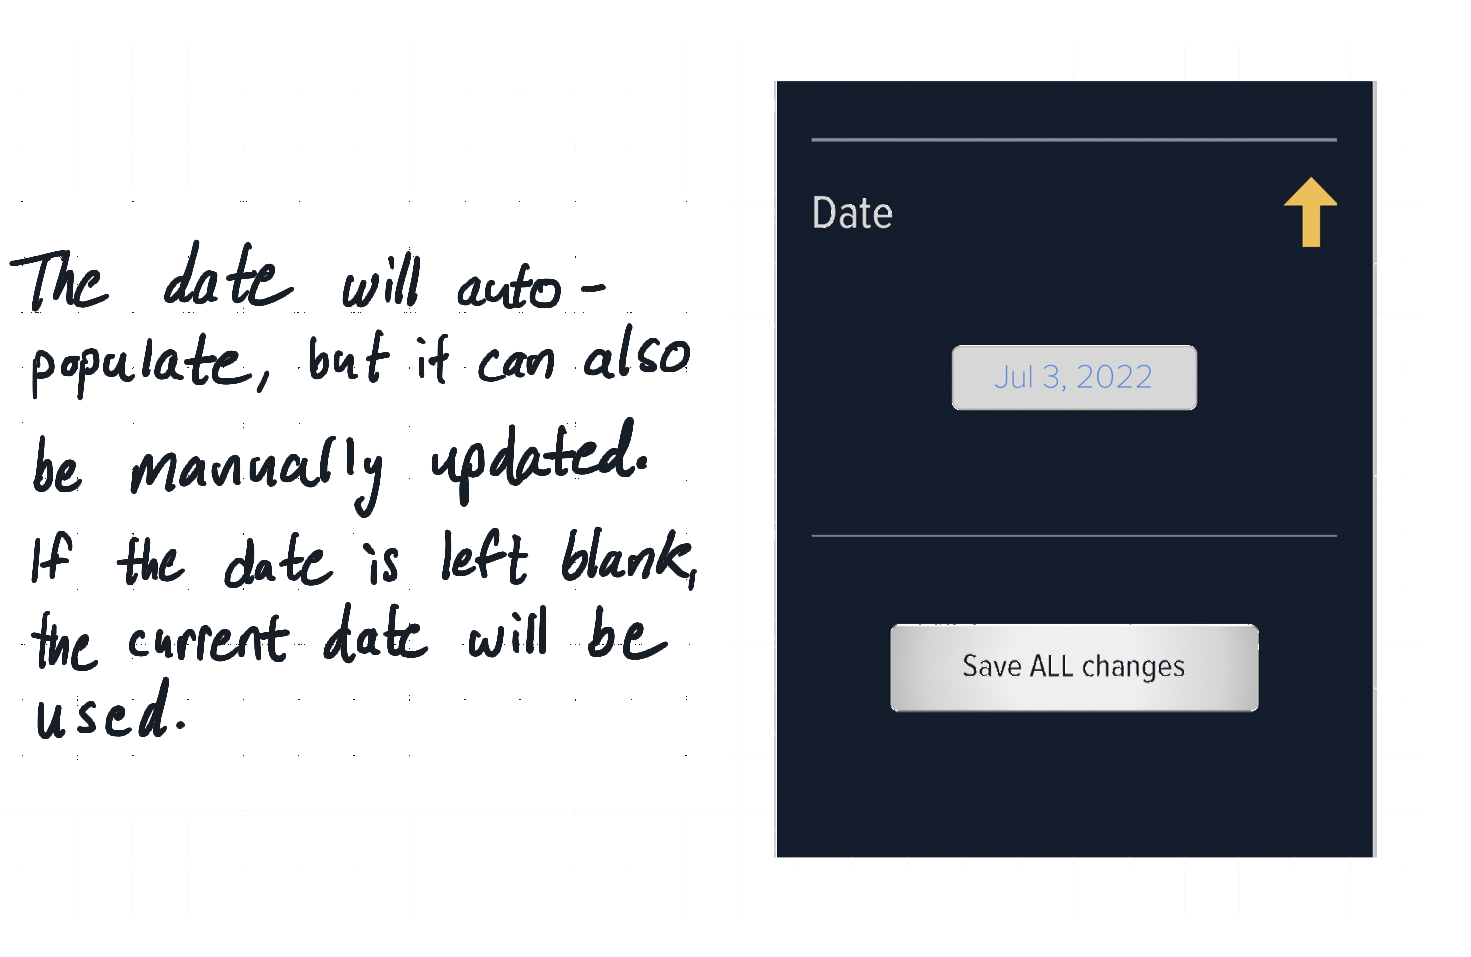 The date will auto-
populate, but it can also
be manually updated.
If the date is left blank,
the current date will be
used.
Date
Jul 3, 2022
Save ALL changes